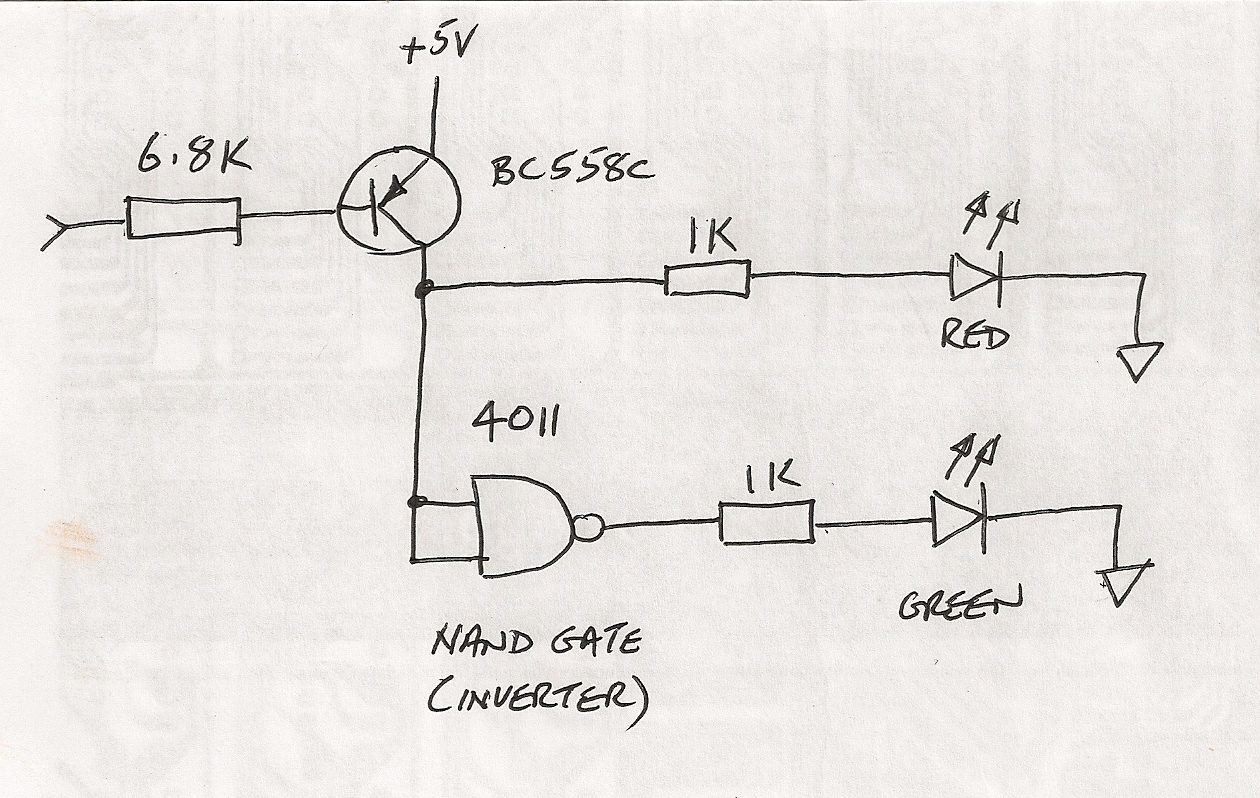 +5V
6.8K
BC558C
1K
RED
4011
1K
GREEN
NAND GATE
(INVERTER)